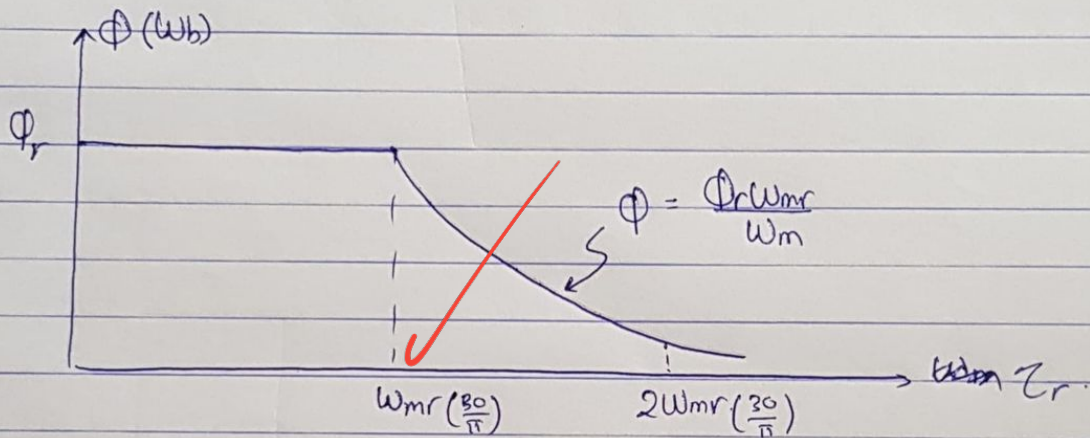 Φ (Wb)
Φr
Φ = Φrωmr / ωm
τr
ωmr (30/π)
2ωmr (30/π)